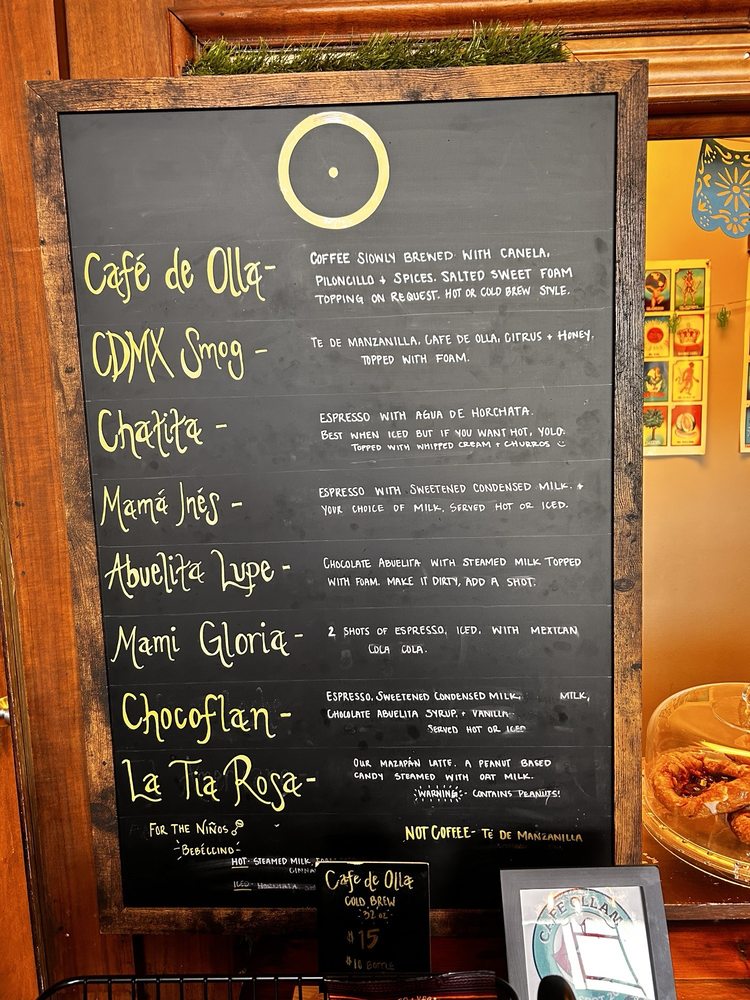 Café de Olla-
COFFEE SLOWLY BREWED WITH CANELA,
PILONCILLO + SPICES. SALTED SWEET FOAM
TOPPING ON REQUEST. HOT OR COLD BREW STYLE.
CDMX Smog -
TE DE MANZANILLA, CAFE DE OLLA, CITRUS + HONEY.
TOPPED WITH FOAM.
Chatita -
ESPRESSO WITH AGUA DE HORCHATA.
BEST WHEN ICED BUT IF YOU WANT HOT, YOLO.
TOPPED WITH WHIPPED CREAM + CHURROS
Mamá Inés -
ESPRESSO WITH SWEETENED CONDENSED MILK. +
YOUR CHOICE OF MILK. SERVED HOT OR ICED.
Abuelita Lupe -
CHOCOLATE ABUELITA WITH STEAMED MILK TOPPED
WITH FOAM. MAKE IT DIRTY, ADD A SHOT.
Mami Gloria -
2 SHOTS OF ESPRESSO, ICED, WITH MEXICAN
COLA COLA.
Chocoflan -
ESPRESSO, SWEETENED CONDENSED MILK, MILK,
CHOCOLATE ABUELITA SYRUP, + VANILLA
SERVED HOT OR ICED
La Tia Rosa-
OUR MAZAPÁN LATTE. A PEANUT BASED
CANDY STEAMED WITH OAT MILK.
WARNING:- CONTAINS PEANUTS!
FOR THE NIÑOS
-BEBÉCCINO-
NOT COFFEE- TÉ DE MANZANILLA
HOT- STEAMED MILK
ICED- HORCHATA
Cafe de Olla
COLD BREW
32 oz
$15
$10 BOTTLE
CAFE OLLAM